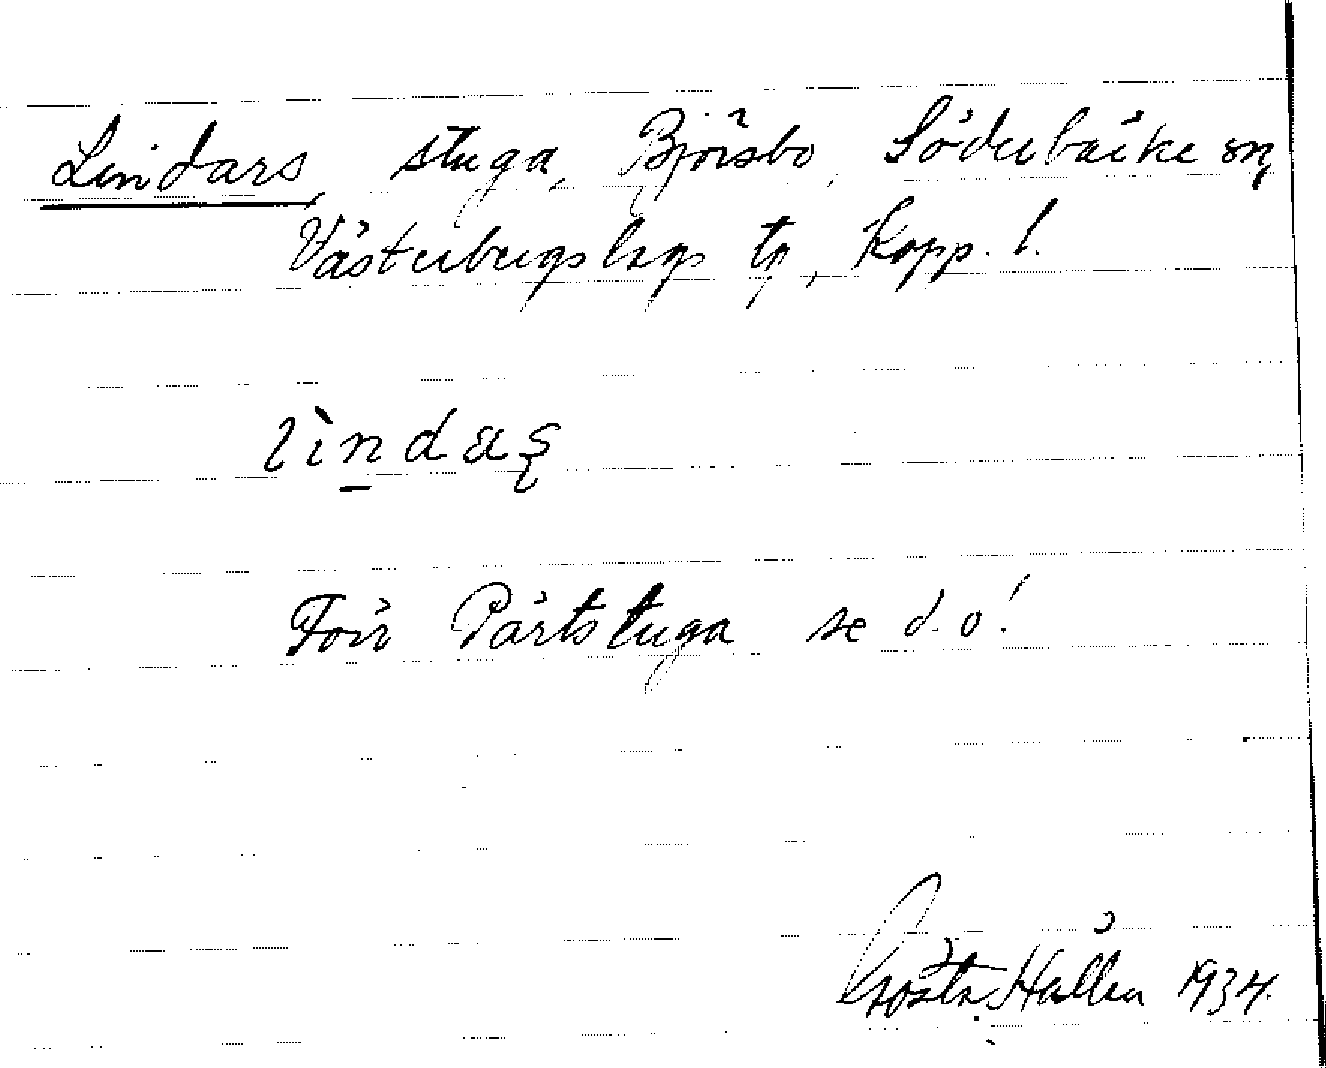 Lindars, stuga, Björsbo, Söderbärke sn,
Västerbergslags tg, Kopp. l.
lìndaş
För Pärtstuga se d.o!
Gösta Hallén 1934.